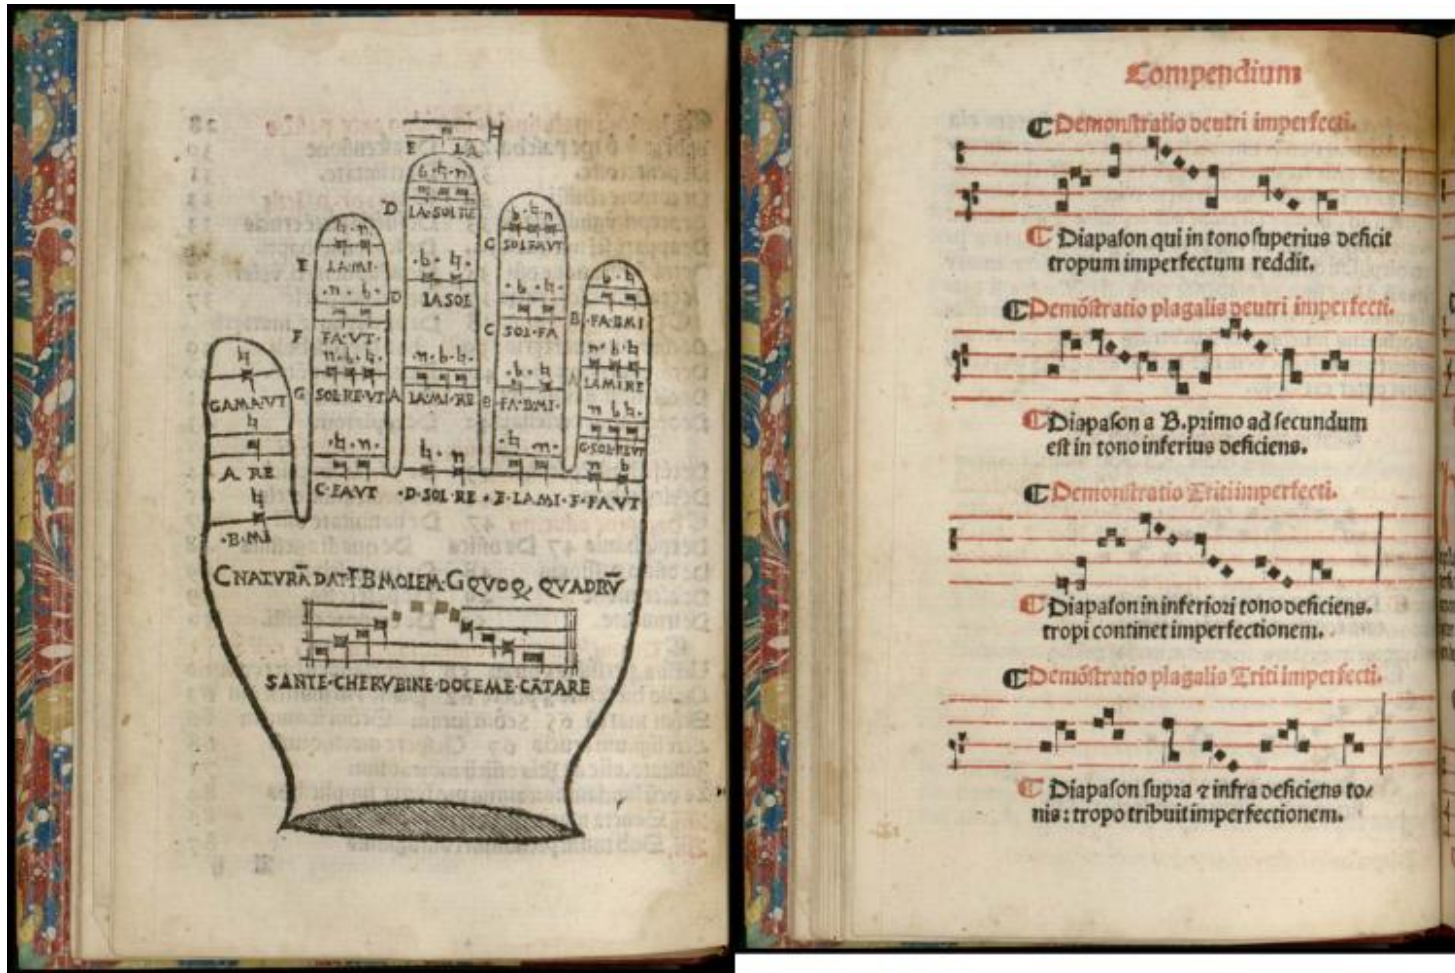 H
E LA
D LA·SOL·RE
C SOL·FA·VT
E LA·MI·
D LA SOL
F FA·VT·
C SOL·FA
B ·FA·B·MI·
GAMA·VT
G SOL·RE·VT
A LA·MI·RE
B ·FA·B·MI·
A LA·MI·RE
G·SOL·RE·VT
A RE
C·FA·VT ·D·SOL·RE ·E·LA·MI· F·FA·VT
·B·MI
C NATVRĀ DAT·F·B MOLEM·G QVOQ, QVADRV̄
SANTE·CHERVBINE·DOCE·ME·CĀTARE
Compendium
Demonstratio deutri imperfecti.
Diapason qui in tono superius deficit
tropum imperfectum reddit.
Demōstratio plagalis deutri imperfecti.
Diapason a B. primo ad secundum
est in tono inferius deficiens.
Demonstratio Triti imperfecti.
Diapason in inferiori tono deficiens.
tropi continet imperfectionem.
Demōstratio plagalis Triti imperfecti.
Diapason supra ⁊ infra deficiens to/
nis: tropo tribuit imperfectionem.